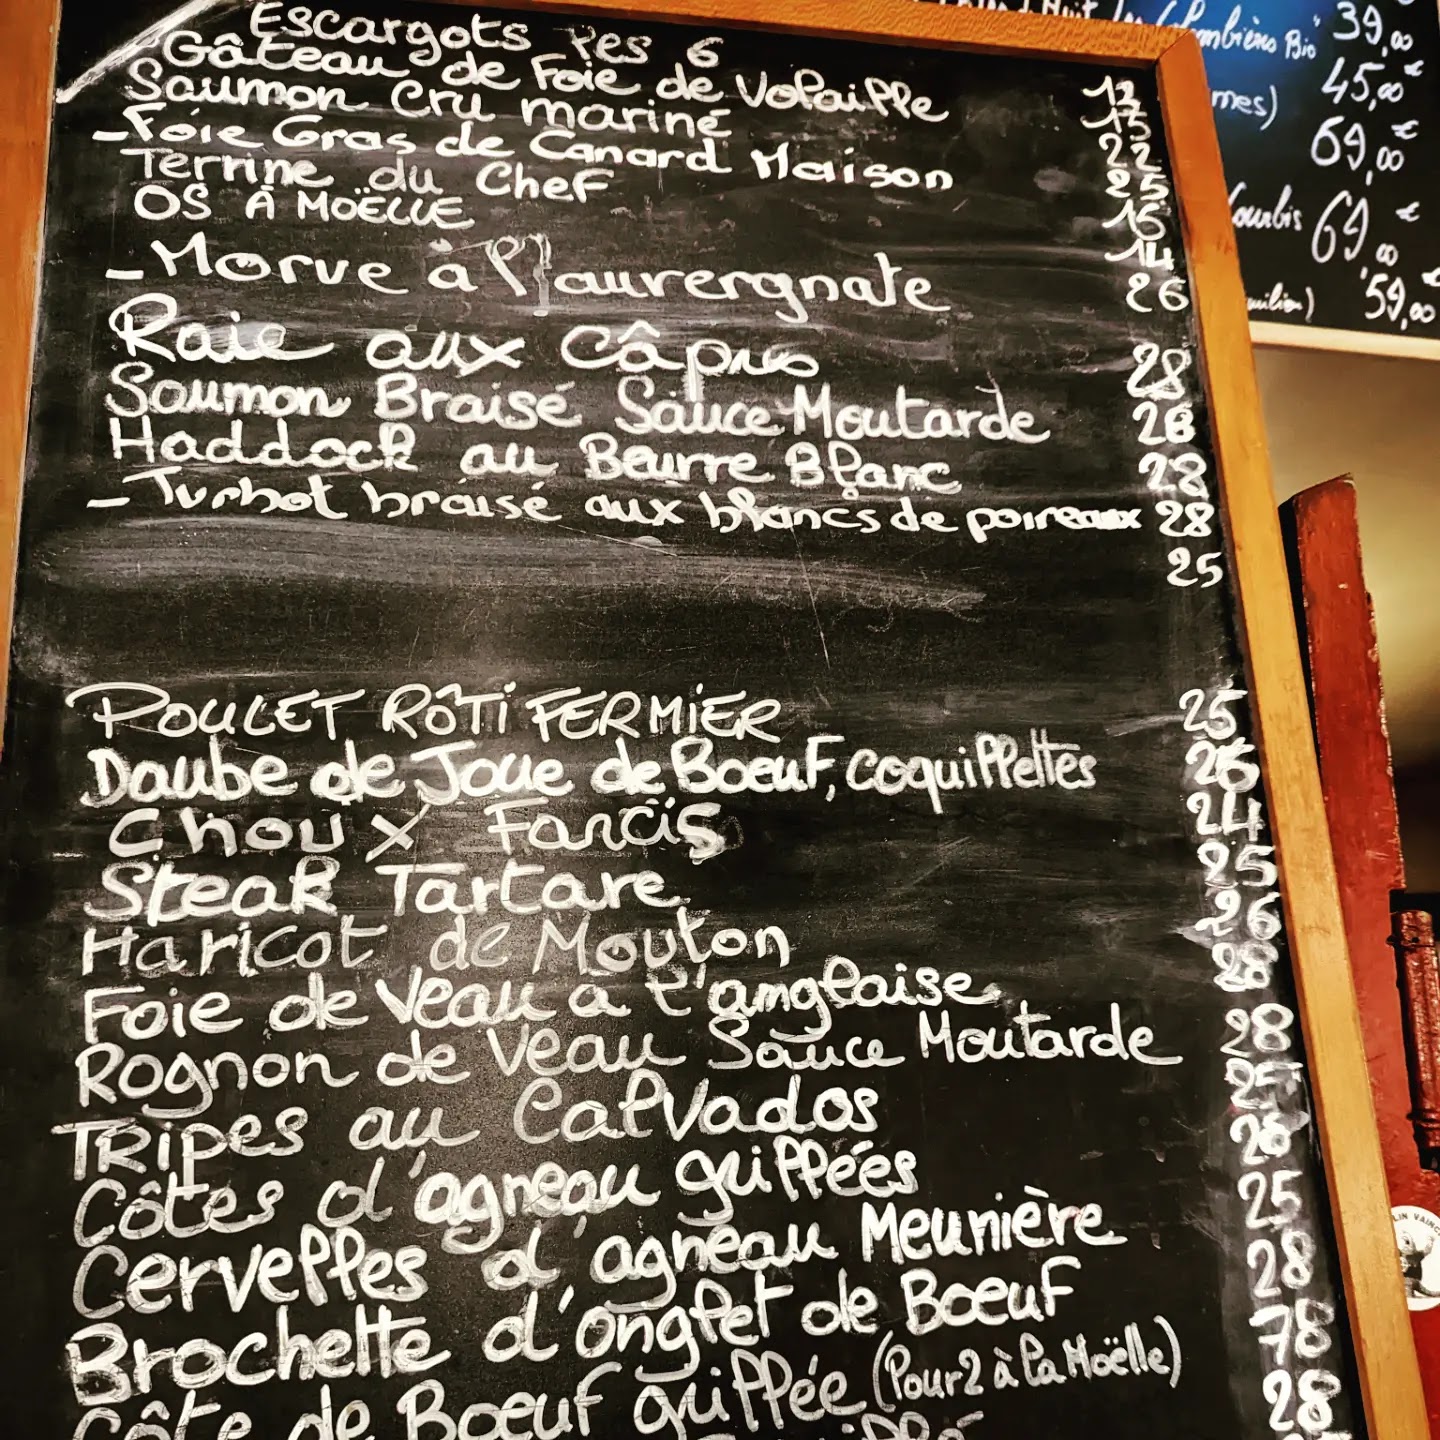 Escargots les 6
Gâteau de Foie de Volaille 13
Saumon Cru mariné
- Foie Gras de Canard Maison 22
Terrine du Chef 25
OS À MOËLLE 16
14
- Morve à l'auvergnate 26
Raie aux Câpres 28
Saumon Braisé Sauce Moutarde 28
Haddock au Beurre Blanc 28
- Turbot braisé aux blancs de poireaux 28
25
POULET RÔTI FERMIER 25
Daube de Joue de Boeuf, coquillettes 26
Choux Farcis 24
Steak Tartare 25
Haricot de Mouton 26
Foie de Veau a l'anglaise 28
Rognon de Veau Sauce Moutarde 28
Tripes au Calvados 25
Côtes d'agneau grillées 26
Cervelles d'agneau Meunière 25
Brochette d'onglet de Boeuf 28
Côte de Boeuf grillée (Pour 2 à la Moëlle) 78
28
Bio" 39,00
45,00€
mes)
69,00€
69,00€
59,00€
LIN VAINC